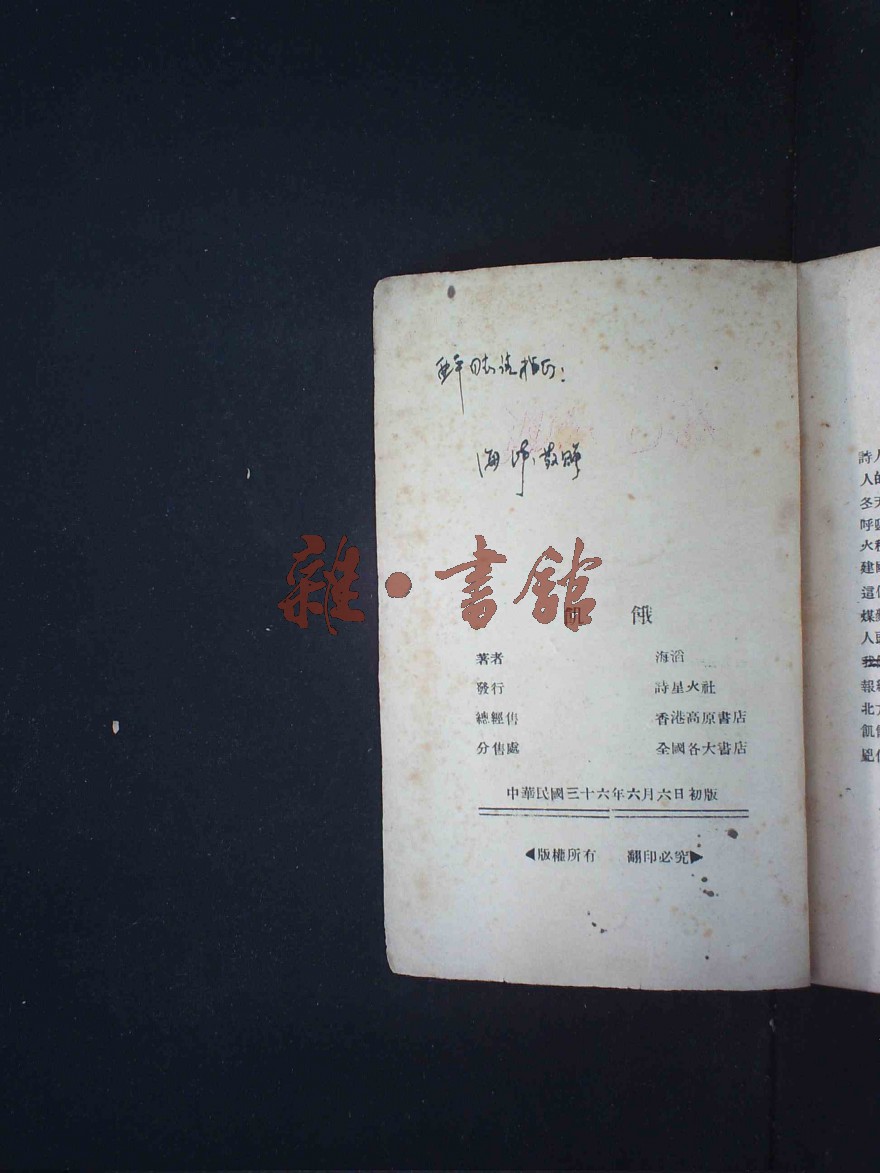 同志请指正：
海 敬赠
雜•書館
飢 餓
著者 海滔
發行 詩星火社
總經售 香港高原書店
分售處 全國各大書店
中華民國三十六年六月六日初版
◀版權所有 翻印必究▶
詩人
人的
冬天
呼
火種
建國
這個
人
報
北方
飢餓